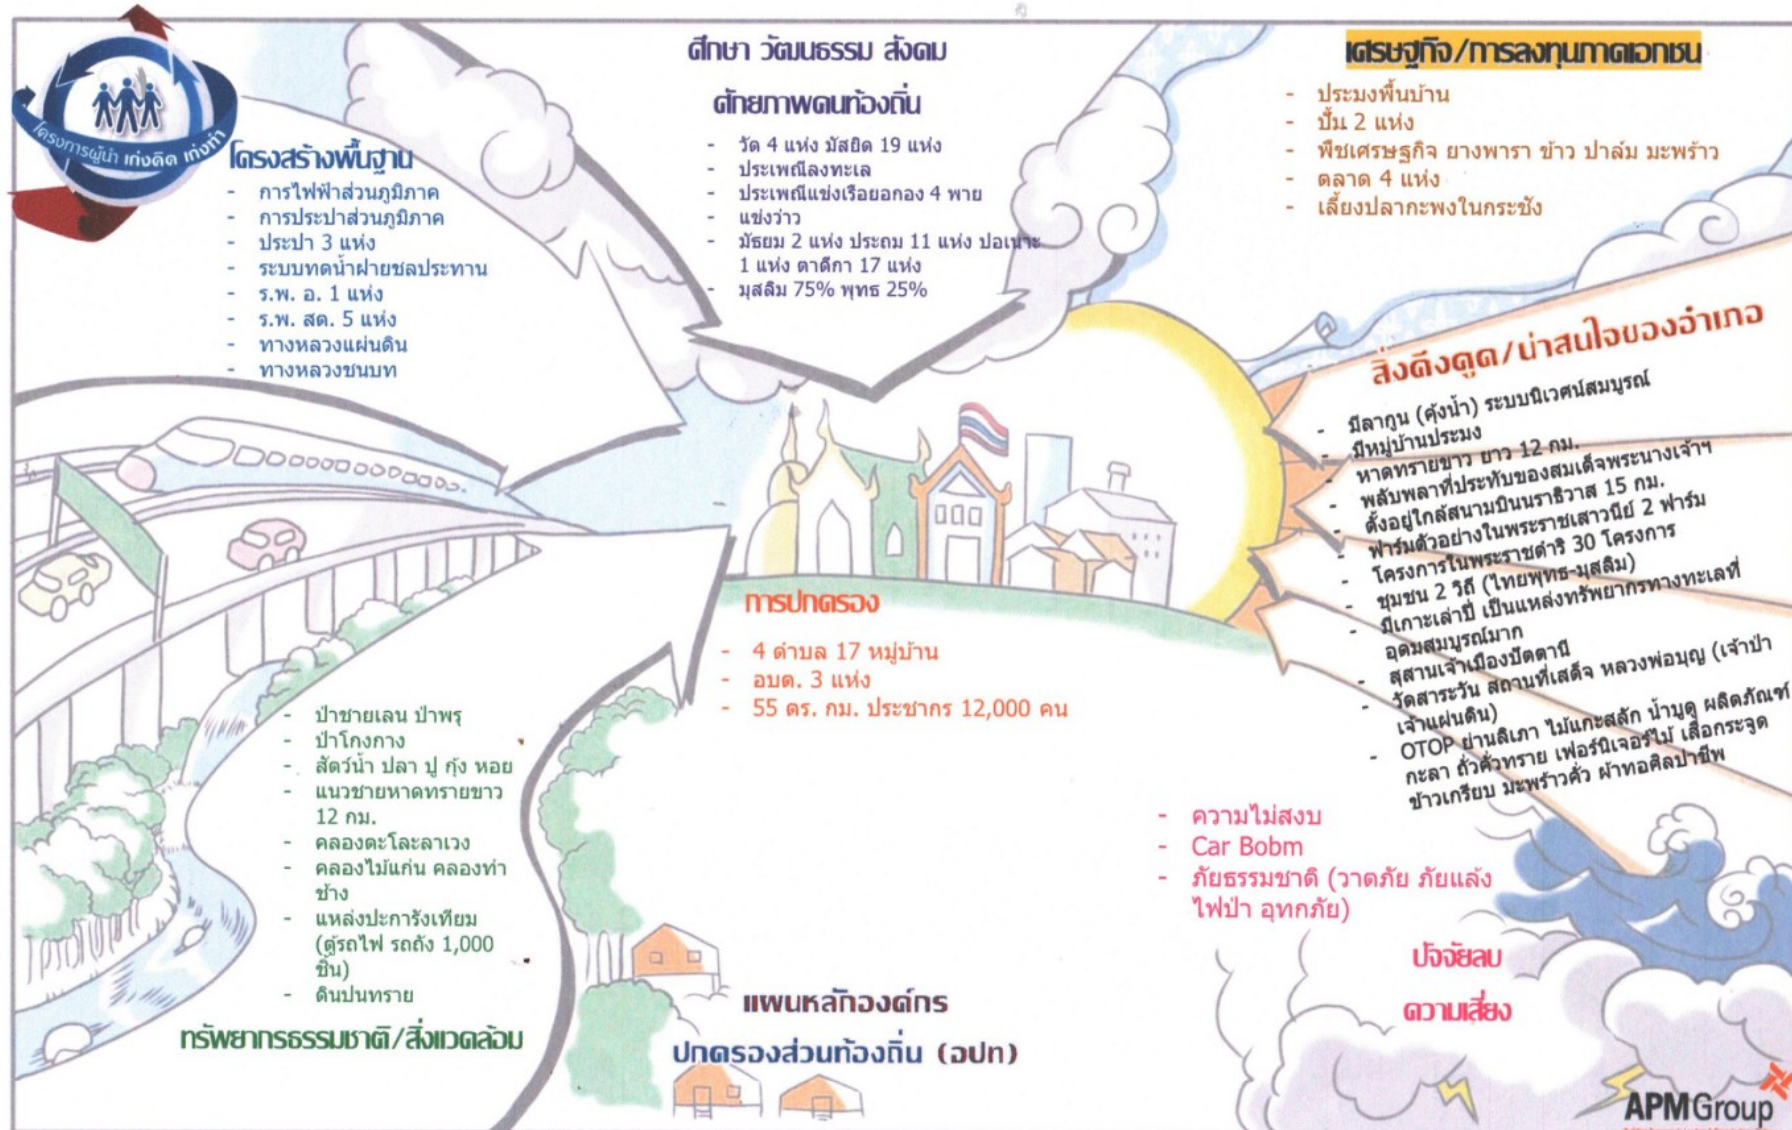 โครงการผู้นำ เก่งคิด เก่งทำ
โครงสร้างพื้นฐาน
- การไฟฟ้าส่วนภูมิภาค
- การประปาส่วนภูมิภาค
- ประปา 3 แห่ง
- ระบบทดน้ำฝายชลประทาน
- ร.พ. อ. 1 แห่ง
- ร.พ. สต. 5 แห่ง
- ทางหลวงแผ่นดิน
- ทางหลวงชนบท
ศึกษา วัฒนธรรม สังคม
ศักยภาพคนท้องถิ่น
- วัด 4 แห่ง มัสยิด 19 แห่ง
- ประเพณีลงทะเล
- ประเพณีแข่งเรือยอกอง 4 พาย
- แข่งว่าว
- มัธยม 2 แห่ง ประถม 11 แห่ง ปอเนาะ
1 แห่ง ตาดีกา 17 แห่ง
- มุสลิม 75% พุทธ 25%
เศรษฐกิจ/การลงทุนภาคเอกชน
- ประมงพื้นบ้าน
- ปั้ม 2 แห่ง
- พืชเศรษฐกิจ ยางพารา ข้าว ปาล์ม มะพร้าว
- ตลาด 4 แห่ง
- เลี้ยงปลากะพงในกระชัง
สิ่งดึงดูด/น่าสนใจของอำเภอ
- มีลากูน (คุ้งน้ำ) ระบบนิเวศน์สมบูรณ์
- มีหมู่บ้านประมง
- หาดทรายขาว ยาว 12 กม.
- พลับพลาที่ประทับของสมเด็จพระนางเจ้าฯ
- ตั้งอยู่ใกล้สนามบินนราธิวาส 15 กม.
- ฟาร์มตัวอย่างในพระราชเสาวนีย์ 2 ฟาร์ม
- โครงการในพระราชดำริ 30 โครงการ
- ชุมชน 2 วิถี (ไทยพุทธ-มุสลิม)
- มีเกาะเล่าปี่ เป็นแหล่งทรัพยากรทางทะเลที่
อุดมสมบูรณ์มาก
- สุสานเจ้าเมืองปัตตานี
- วัดสาระวัน สถานที่เสด็จ หลวงพ่อบุญ (เจ้าป่า
เจ้าแผ่นดิน)
- OTOP ย่านลิเภา ไม้แกะสลัก น้ำบูดู ผลิตภัณฑ์
กะลา ถั่วคั่วทราย เฟอร์นิเจอร์ไม้ เสื่อกระจูด
ข้าวเกรียบ มะพร้าวคั่ว ผ้าทอศิลปาชีพ
การปกครอง
- 4 ตำบล 17 หมู่บ้าน
- อบต. 3 แห่ง
- 55 ตร. กม. ประชากร 12,000 คน
- ป่าชายเลน ป่าพรุ
- ป่าโกงกาง
- สัตว์น้ำ ปลา ปู กุ้ง หอย
- แนวชายหาดทรายขาว
12 กม.
- คลองตะโละลาเวง
- คลองไม้แก่น คลองท่า
ช้าง
- แหล่งปะการังเทียม
(ตู้รถไฟ รถถัง 1,000
ชิ้น)
- ดินปนทราย
ทรัพยากรธรรมชาติ/สิ่งแวดล้อม
- ความไม่สงบ
- Car Bobm
- ภัยธรรมชาติ (วาตภัย ภัยแล้ง
ไฟป่า อุทกภัย)
ปัจจัยลบ
ความเสี่ยง
แผนหลักองค์กร
ปกครองส่วนท้องถิ่น (อปท)
APMGroup